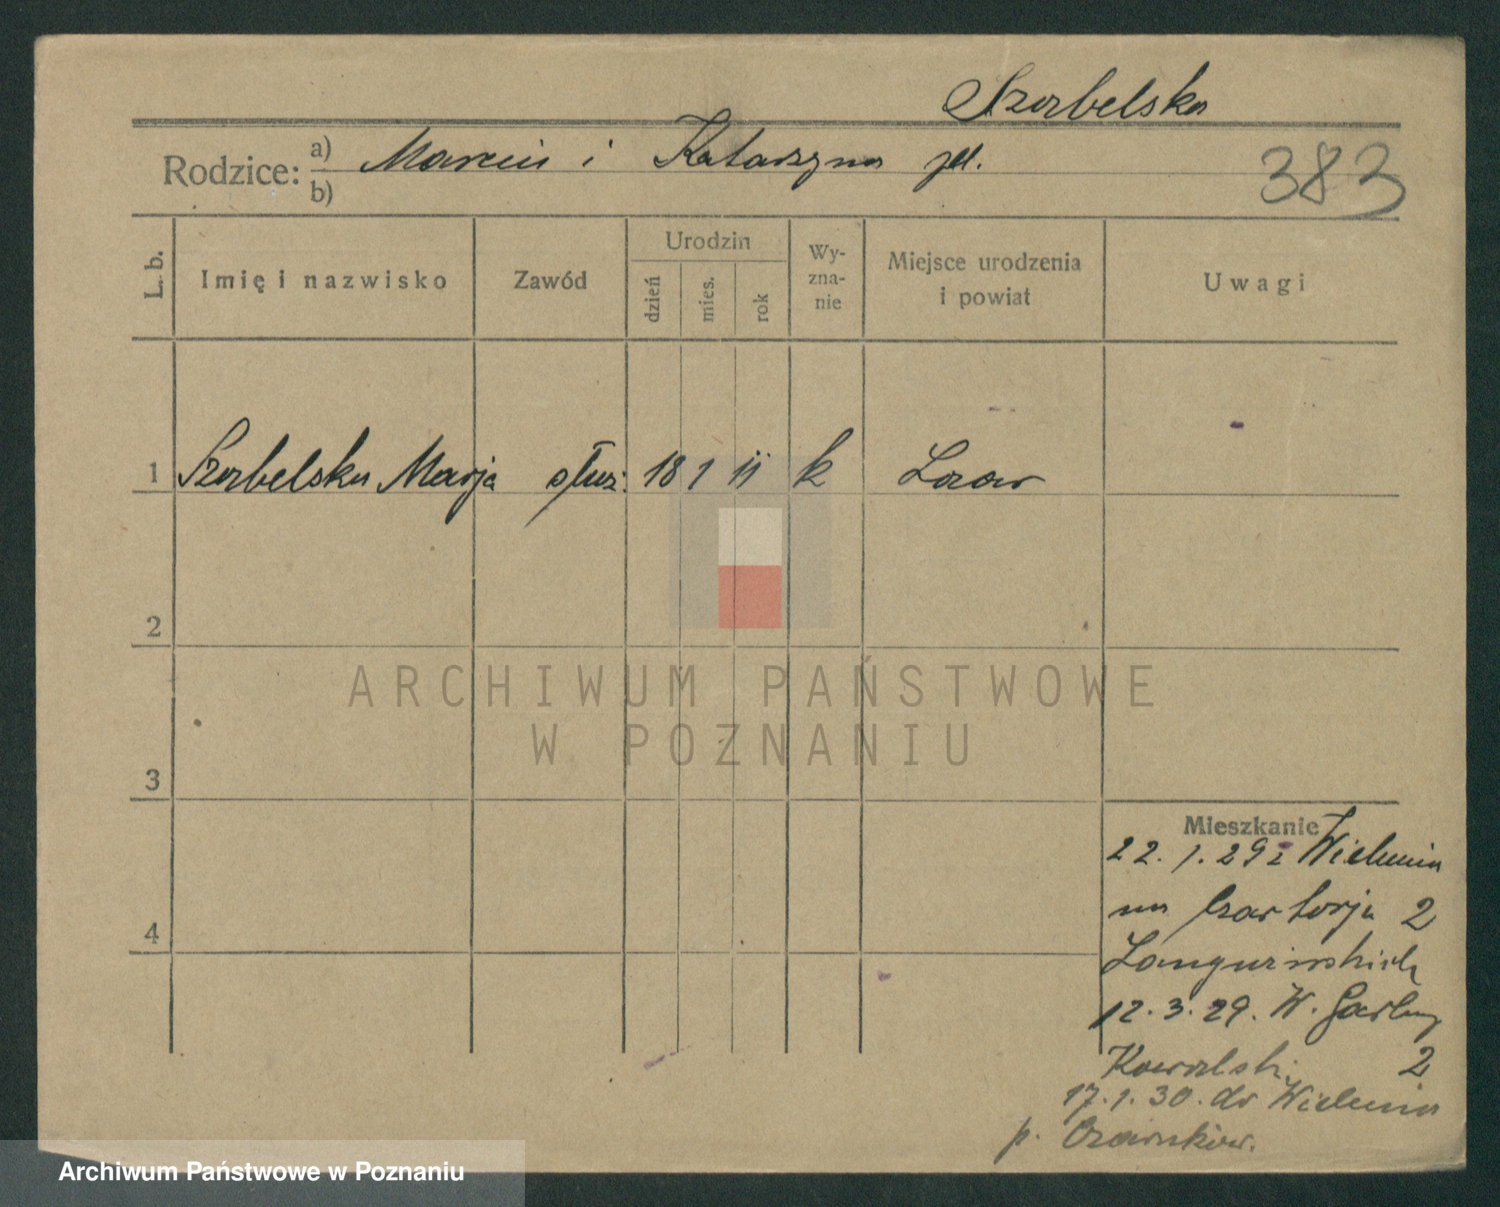 Szorbelska
Rodzice: a) Marcin i Katarzyna
b)
383
L. b.
Imię i nazwisko
Zawód
Urodzin
dzień
mies.
rok
Wy-
zna-
nie
Miejsce urodzenia
i powiat
Uwagi
1 Szorbelska Marja służ. 18 1 11 k
2
3
4
Mieszkanie
22. 1. 29 z Wielenia
na Czartorja 2
12. 3. 29. W. Garbary
Kowalski 2
17. 1. 30. do Wielenia
p. Czarnków.
ARCHIWUM PAŃSTWOWE
W POZNANIU
Archiwum Państwowe w Poznaniu